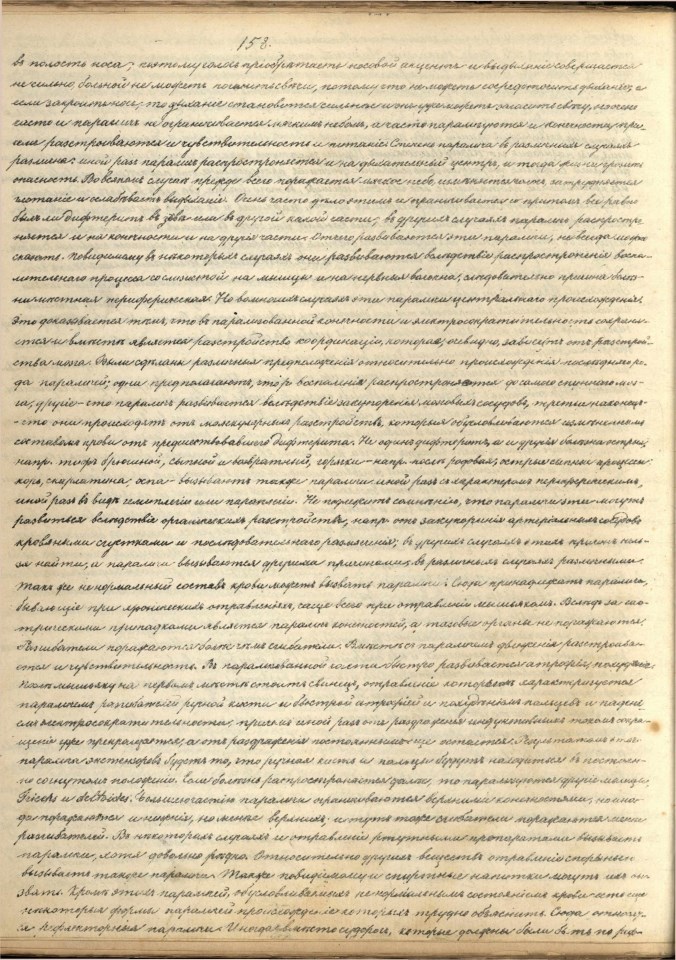 158.
въ полость носа; поэтому голосъ пріобрѣтаетъ носовой акцентъ и выдыханіе совершается
не сильно, больной не можетъ погасить свѣчи, потому что не можетъ сосредоточить дыханія; а
если закроить носъ, то дыханіе становится сильнѣе и онъ уже можетъ погасить свѣчу,
часто и параличъ не ограничивается мягкимъ небомъ, а часто парализуются и конечности, при
чемъ разстроиваются и чувствительность и питаніе. Степень паралича въ различныхъ случаяхъ
различна: иной разъ параличъ распространяется и на дыхательный центръ, и тогда жизни грозитъ
опасность. Во всякомъ случаѣ прежде всего поражается мягкое небо, затрудняется
глотаніе и ослабѣваетъ выдыханіе. Очень часто дѣло этимъ и ограничивается все равно
былъ ли дифтеритъ въ зѣвѣ или въ другой какой части; въ другихъ случаяхъ параличъ распростра-
няется и на конечности и на другія части. Отчего развиваются эти параличи, не всегда можно
сказать. Повидимому въ нѣкоторыхъ случаяхъ они развиваются вслѣдствіе распространенія воспа-
лительнаго процесса со слизистой на мышцы и на нервныя волокна, слѣдовательно причина бы-
ла мѣстная периферическая. Но во многихъ случаяхъ эти параличи центральнаго происхожденія.
Это доказывается тѣмъ, что въ парализованной конечности и электросократительность сохраня-
ется и вмѣстѣ является разстройство координаціи, которая, очевидно, зависитъ отъ разстрой-
ства мозга. Были сдѣланы различныя предположенія относительно происхожденія послѣдняго ро-
да параличей; одни предполагаютъ, что воспаленіе распространяется до самого спиннаго моз-
га; другіе — что параличъ развивается вслѣдствіе закупоренія мозговыхъ сосудовъ, третьи наконецъ
— что они происходятъ отъ молекулярныхъ разстройствъ, которыя обусловливаются измѣненнымъ
составомъ крови отъ предшествовавшаго дифтерита. Не одинъ дифтеритъ, а и другія болѣзни острыя,
напр. тифъ брюшной, сыпной и возвратный, горячки — напр. послѣ родовая, острыя сыпныя процессы:
корь, скарлатина, оспа — вызываютъ также параличи иной разъ съ характеромъ периферическимъ,
иной разъ въ видѣ гемиплегіи или параплегіи. Не подлежитъ сомнѣнію, что параличи эти могутъ
развиться вслѣдствіе органическихъ разстройствъ, напр. отъ закупоренія артеріальныхъ сосудовъ
кровяными сгустками и послѣдовательнаго размягченія; въ другихъ случаяхъ этихъ причинъ нель-
зя найти, и параличи вызываются другими причинами въ различныхъ случаяхъ различными.
Также ненормальный составъ крови можетъ вызвать параличи. Сюда принадлежатъ параличи,
бывающіе при хроническихъ отравленіяхъ, чаще всего при отравленіи мышьякомъ. Вслѣдъ за гас-
трическими припадками является параличъ конечностей, а тазовые органы не поражаются;
Разгибатели поражаются болѣе чѣмъ сгибатели. Вмѣстѣ съ параличемъ движенія разстроива-
ется и чувствительность. Въ парализованной части быстро развивается атрофія, похуданіе.
Послѣ мышьяку на первомъ мѣстѣ стоитъ свинецъ, отравленіе которымъ характеризуется
параличемъ разгибателей ручной кисти и быстрой атрофіей и похуданіемъ пальцевъ и паденi-
емъ электросократительности; причемъ иной разъ она раздраженія индуктивнымъ токомъ сокра-
щеній уже прекращается, а отъ раздраженія постояннымъ еще остается. Результатомъ этого
паралича экстензоровъ будетъ то, что ручная кисть и пальцы будутъ находиться въ постоян-
но согнутомъ положеніи. Если болѣзнь распространяется далѣе, то парализуются другія мышцы,
Triceps и deltoides. Большею частію параличи ограничиваются верхними конечностями, но иног-
да поражаются и нижнія, но менѣе верхнихъ. И тутъ также сгибатели поражаются менѣе
разгибателей. Въ нѣкоторыхъ случаяхъ и отравленіи ртутными препаратами вызываетъ
параличи, хотя довольно рѣдко. Относительно другихъ веществъ отравленіе спорыньею
вызываетъ также параличи. Также повидимому и спиртные напитки могутъ ихъ вы-
звать. Кромѣ этихъ параличей, обусловливаемыхъ ненормальнымъ состояніемъ крови есть еще
нѣкоторыя формы параличей происхожденіе которыхъ трудно объяснить. Сюда относят-
ся рефлекторные параличи. Иногда вмѣсто судорогъ, которые должны были быть по